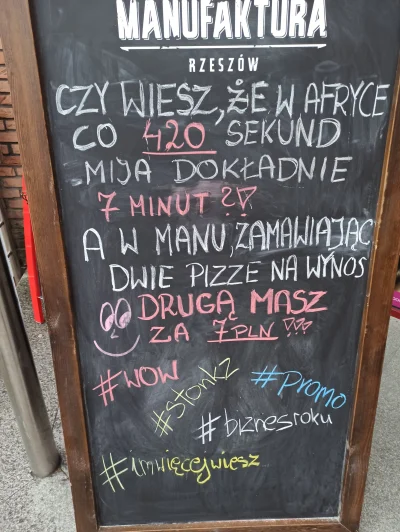 MANUFAKTURA
RZESZÓW
CZY WIESZ, ŻE W AFRYCE
CO 420 SEKUND
MIJA DOKŁADNIE
7 MINUT ?!
A W MANU, ZAMAWIAJĄC
DWIE PIZZE NA WYNOS
DRUGĄ MASZ
ZA 7 PLN !!!
#WOW
#stonkz
#Promo
#biznesroku
#imwięcejwiesz